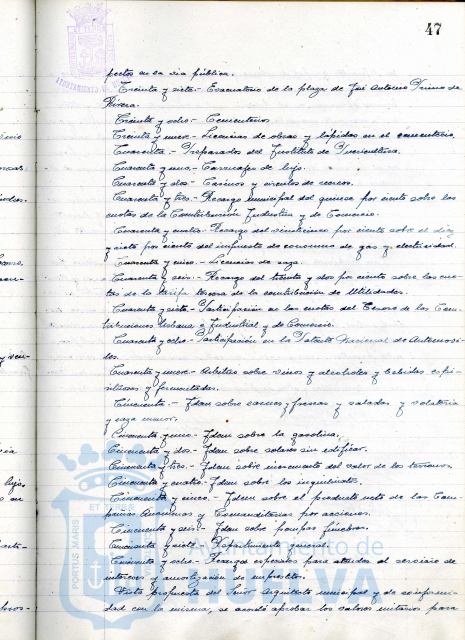 47
pectos en la via pública.
Treinta y siete.- Evacuatorio de la plaza de José Antonio Primo de
Rivera.
Treinta y ocho.- Cementerios.
Treinta y nueve.- Licencias de obras y lápidas en el cementerio.
Cuarenta.- Preparados del Instituto de Puericultura.
Cuarenta y uno.- Carruajes de lujo.
Cuarenta y dos.- Casinos y circulos de recreo.
Cuarenta y tres.- Recargo municipal del quince por ciento sobre las
cuotas de la Contribución Industrial y de Comercio.
Cuarenta y cuatro.- Recargo del veinticinco por ciento sobre el diez
y siete por ciento del impuesto de consumo de gas y electricidad.
Cuarenta y cinco.- Licencias de caza.
Cuarenta y seis.- Recargo del treinta y dos por ciento sobre las cuo-
tas de la tarifa tercera de la contribución de Utilidades.
Cuarenta y siete.- Participación en las cuotas del Tesoro de las Con-
tribuciones Urbana e Industrial y de Comercio.
Cuarenta y ocho.- Participación en la Patente Nacional de Automovi-
les.
Cuarenta y nueve.- Arbitrios sobre vinos y alcoholes y bebidas espi-
rituosas y fermentadas.
Cincuenta.- Idem sobre carnes, frescas y saladas y volatería
y caza menor.
Cincuenta y uno.- Idem sobre la gasolina.
Cincuenta y dos.- Idem sobre solares sin edificar.
Cincuenta y tres.- Idem sobre incremento del valor de los terrenos.
Cincuenta y cuatro.- Idem sobre los inquilinatos.
Cincuenta y cinco.- Idem sobre el producto neto de las Com-
pañias Anonimas y Comanditarias por acciones.
Cincuenta y seis.- Idem sobre pompas fúnebres.
Cincuenta y siete.- Repartimiento general.
Cincuenta y ocho.- Recargos especiales para atender el servicio de
intereses y amortización de empréstitos.
Vista propuesta del Señor Arquitecto municipal y de conformi-
dad con la misma, se acordó aprobar los valores unitarios para
Ayuntamiento de
HUELVA
PORTUS MARIS